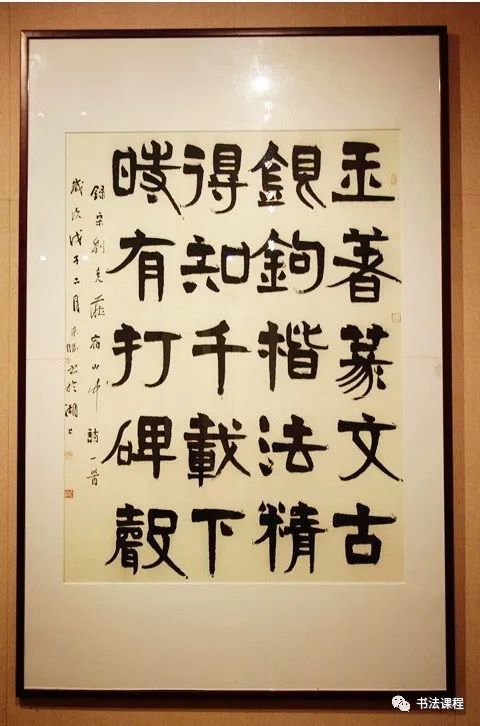 玉著篆文古
銀鉤楷法精
得知千載下
時有打碑聲
錄宋劉克莊宿山中詩一首
歲次戊子二月書於湖上
书法课程